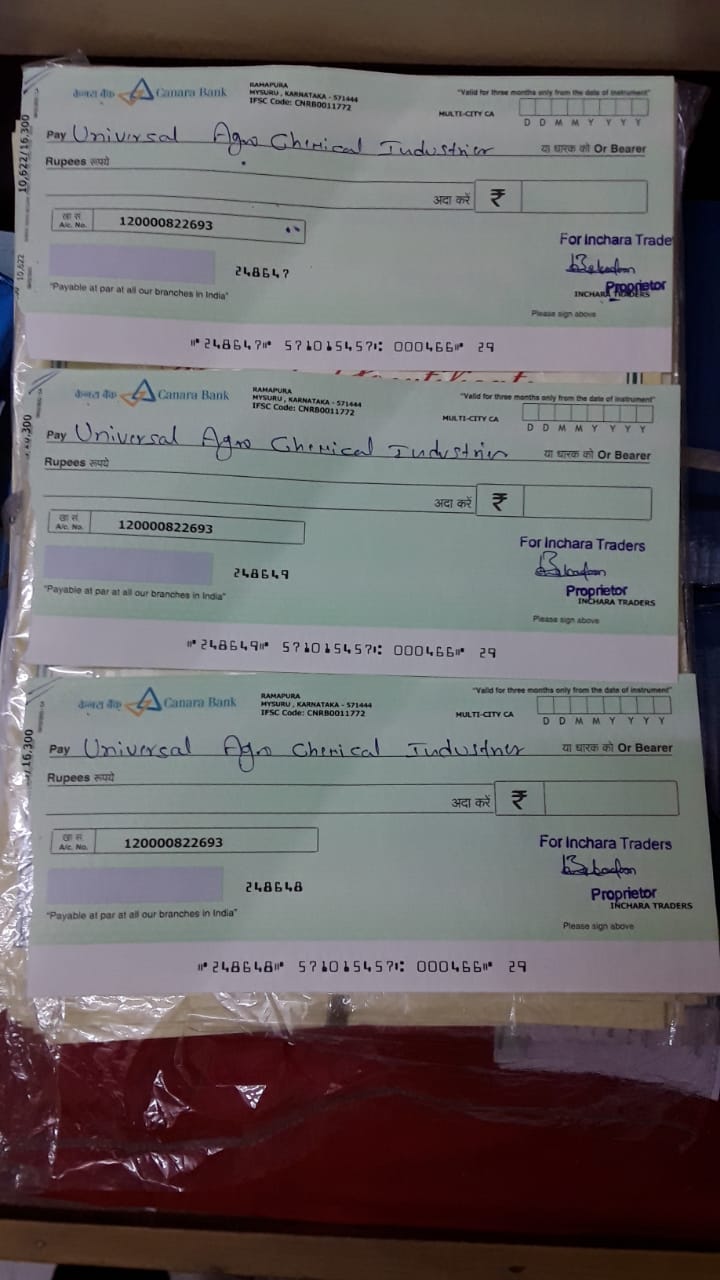 केनरा बैंक Canara Bank
RAMAPURA
MYSURU, KARNATAKA - 571444
IFSC Code: CNRB0011772
"Valid for three months only from the date of instrument"
MULTI-CITY CA
D D M M Y Y Y Y
Pay Universal Agro Chemical Industries या धारक को Or Bearer
Rupees रूपये
अदा करें ₹
खा सं.
A/c. No. 120000822693
248647
"Payable at par at all our branches in India"
For Inchara Trade
Proprietor
INCHARA TRADERS
Please sign above
⑈248647⑈ 571015457⑆ 000466⑈ 29
10,622/16,300
10,622
केनरा बैंक Canara Bank
RAMAPURA
MYSURU, KARNATAKA - 571444
IFSC Code: CNRB0011772
"Valid for three months only from the date of instrument"
MULTI-CITY CA
D D M M Y Y Y Y
Pay Universal Agro Chemical Industries या धारक को Or Bearer
Rupees रूपये
अदा करें ₹
खा सं.
A/c. No. 120000822693
248649
"Payable at par at all our branches in India"
For Inchara Traders
Proprietor
INCHARA TRADERS
Please sign above
⑈248649⑈ 571015457⑆ 000466⑈ 29
केनरा बैंक Canara Bank
RAMAPURA
MYSURU, KARNATAKA - 571444
IFSC Code: CNRB0011772
"Valid for three months only from the date of instrument"
MULTI-CITY CA
D D M M Y Y Y Y
Pay Universal Agro Chemical Industries या धारक को Or Bearer
Rupees रूपये
अदा करें ₹
खा सं.
A/c. No. 120000822693
248648
"Payable at par at all our branches in India"
For Inchara Traders
Proprietor
INCHARA TRADERS
Please sign above
⑈248648⑈ 571015457⑆ 000466⑈ 29
/16,300